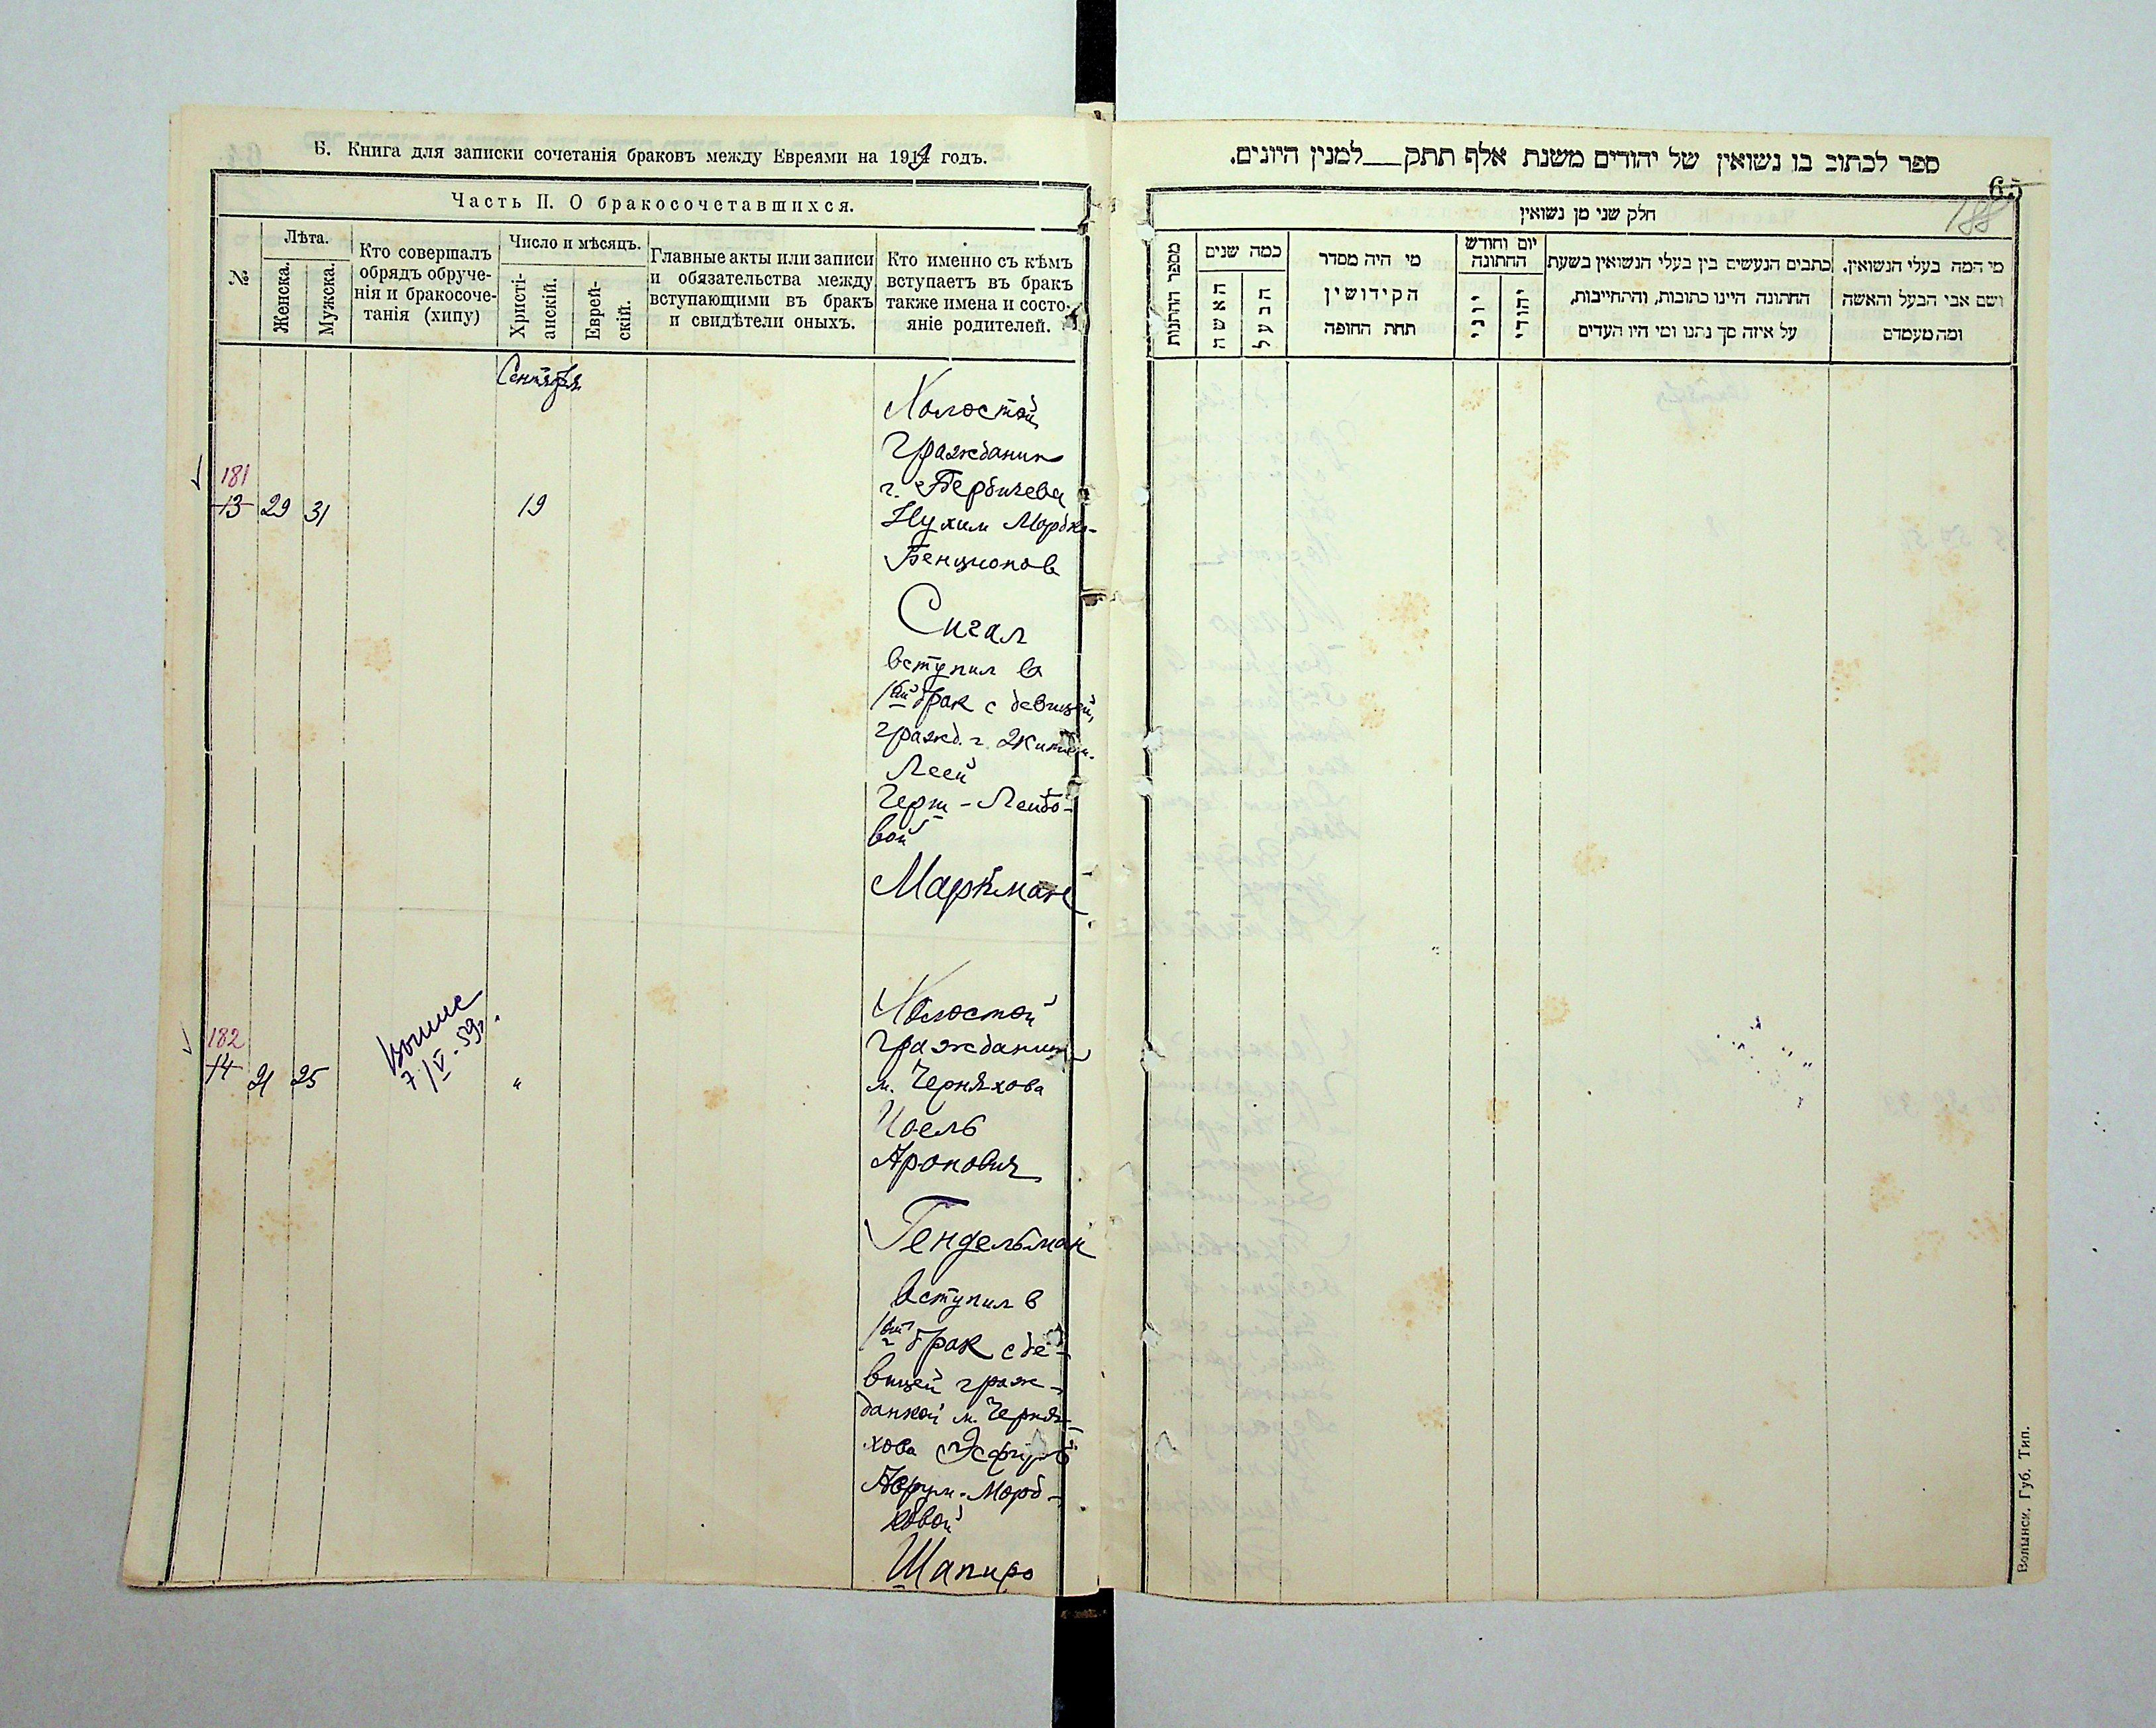 Б. Книга для записки сочетанія браковъ между Евреями на 1919 годъ.
Часть II. О бракосочетавшихся.
№
Лѣта.
Женска.
Мужска.
Кто совершалъ
обрядъ обруче-
нія и бракосоче-
танія (хипу)
Число и мѣсяцъ.
Христі-
анскій.
Еврей-
скій.
Главные акты или записи
и обязательства между
вступающими въ бракъ
и свидѣтели оныхъ.
Кто именно съ кѣмъ
вступаетъ въ бракъ
также имена и состо-
яніе родителей.
Сентября
181
13 29 31
19
Холостой
Гражданин
г. Бердичева
Нухим Мордко-
Бенционов
Сигал
вступил в
1ый брак с девицей,
гражд. г. Житом.
Леей
Герш-Лейбо-
вой
Маркман
182
14 21 25
7/V-59г.
"
Холостой
Гражданин
м. Черняхова
Иоель
Аронович
Гендельман
Вступил в
1ый брак с де-
вицей граж-
данкой м. Черня-
хова Эсфирь
Аврум-Морд-
ковой
Шапиро
ספר לכתוב בו נשואין של יהודים משנת אלף תתק למנין היונים.
65
188
חלק שני מן נשואין
מספר החתנות
כמה שנים
האשה
הבעל
מי היה מסדר
הקידושין
תחת החופה
יום וחודש
החתונה
יוני
יהודי
כתבים הנעשים בין בעלי הנשואין בשעת
החתונה היינו כתובות, והתחייבות,
על איזה סך נתנו ומי היו העדים
מי המה בעלי הנשואין.
ושם אבי הבעל והאשה
ומה מעמדם
Волынск. Губ. Тип.